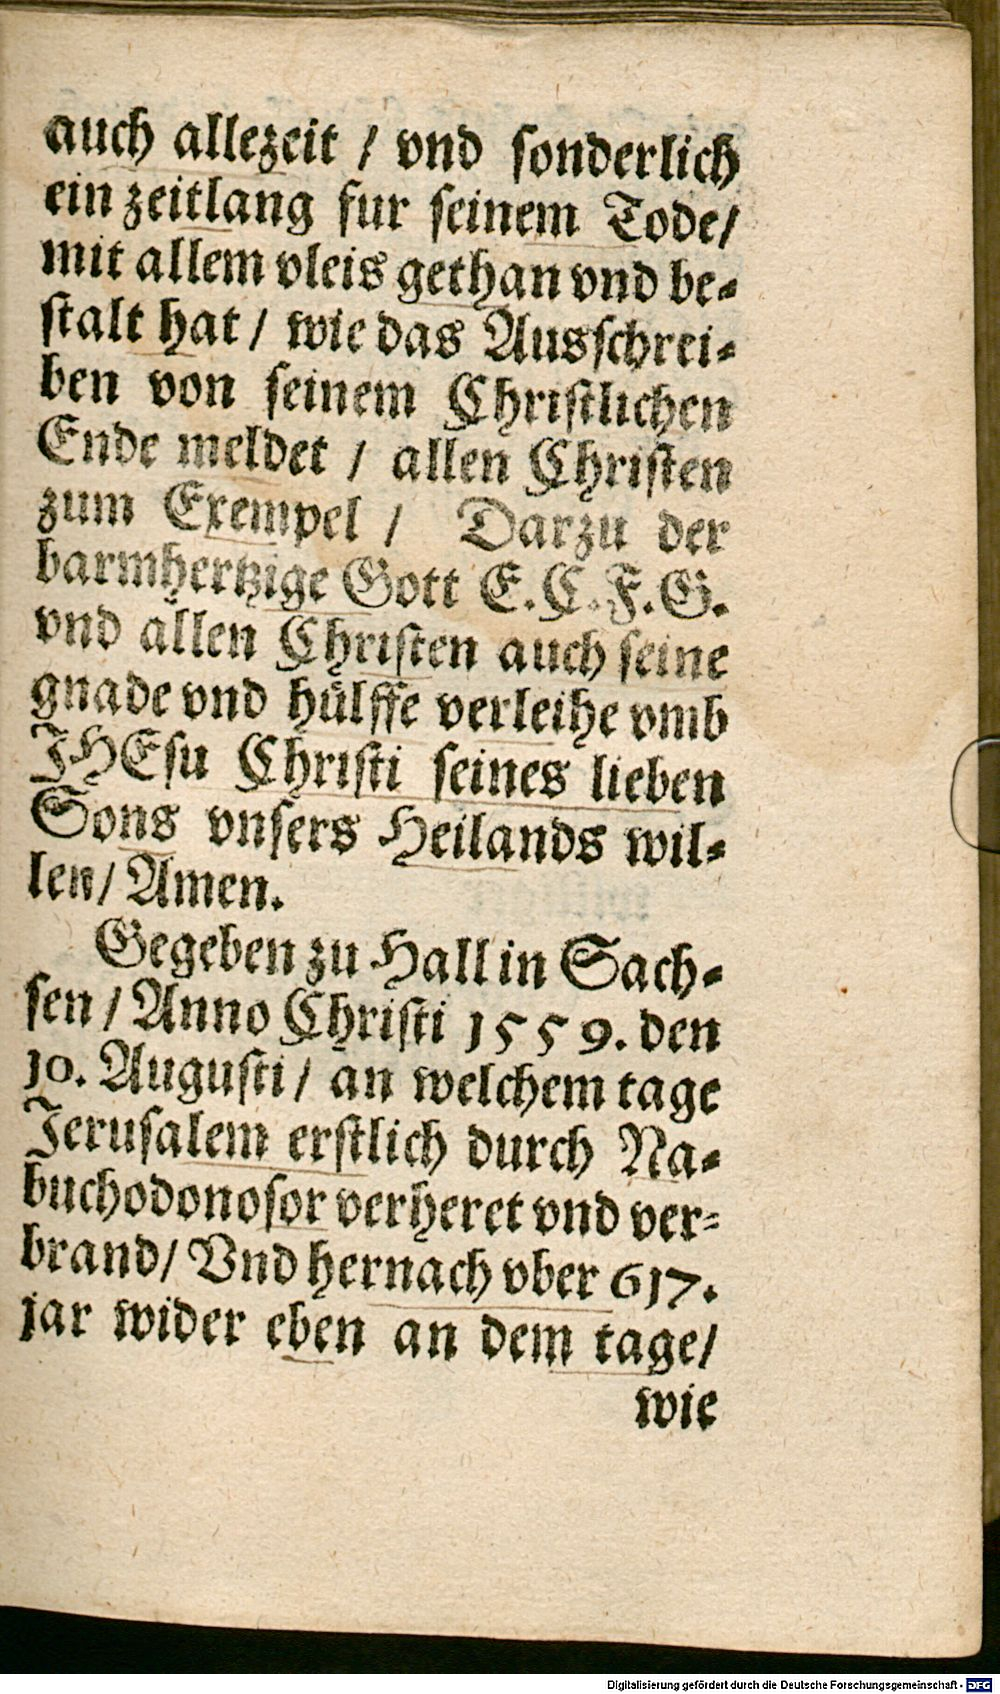 auch allezeit / vnd sonderlich
ein zeitlang fur seinem Tode/
mit allem vleis gethan vnd be-
stalt hat / wie das Ausschrei-
ben von seinem Christlichen
Ende meldet / allen Christen
zum Exempel / Darzu der
barmhertzige Gott E. C. F. G.
vnd allen Christen auch seine
gnade vnd hülffe verleihe vmb
JHEsu Christi seines lieben
Sons vnsers Heilands wil-
len/ Amen.
Gegeben zu Hall in Sach-
sen / Anno Christi 1559. den
10. Augusti / an welchem tage
Jerusalem erstlich durch Na-
buchodonosor verheret vnd ver-
brand/ Vnd hernach vber 617.
jar wider eben an dem tage/
wie
Digitalisierung gefördert durch die Deutsche Forschungsgemeinschaft - DFG